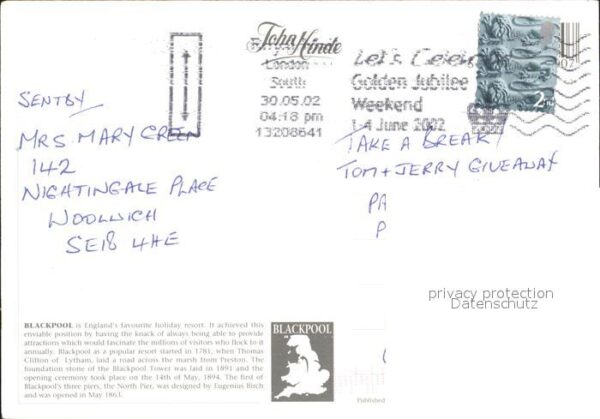 John Hinde
London
South
30.05.02
04:18 pm
13208641
Let's Celeb
Golden Jubilee
Weekend
1-4 June 2002
2nd
SENTBY
MRS MARY GREEN
142
NIGHTINGALE PLACE
WOOLWICH
SE18 4HE
TAKE A BREAK
TOM + JERRY GIVEAWAY
PA
P
privacy protection
Datenschutz
BLACKPOOL is England's favourite holiday resort. It achieved this
enviable position by having the knack of always being able to provide
attractions which would fascinate the millions of visitors who flock to it
annually. Blackpool as a popular resort started in 1781, when Thomas
Clifton of Lytham, laid a road across the marsh from Preston. The
foundation stone of the Blackpool Tower was laid in 1891 and the
opening ceremony took place on the 14th of May, 1894. The first of
Blackpool's three piers, the North Pier, was designed by Eugenius Birch
and was opened in May 1863.
BLACKPOOL
Published